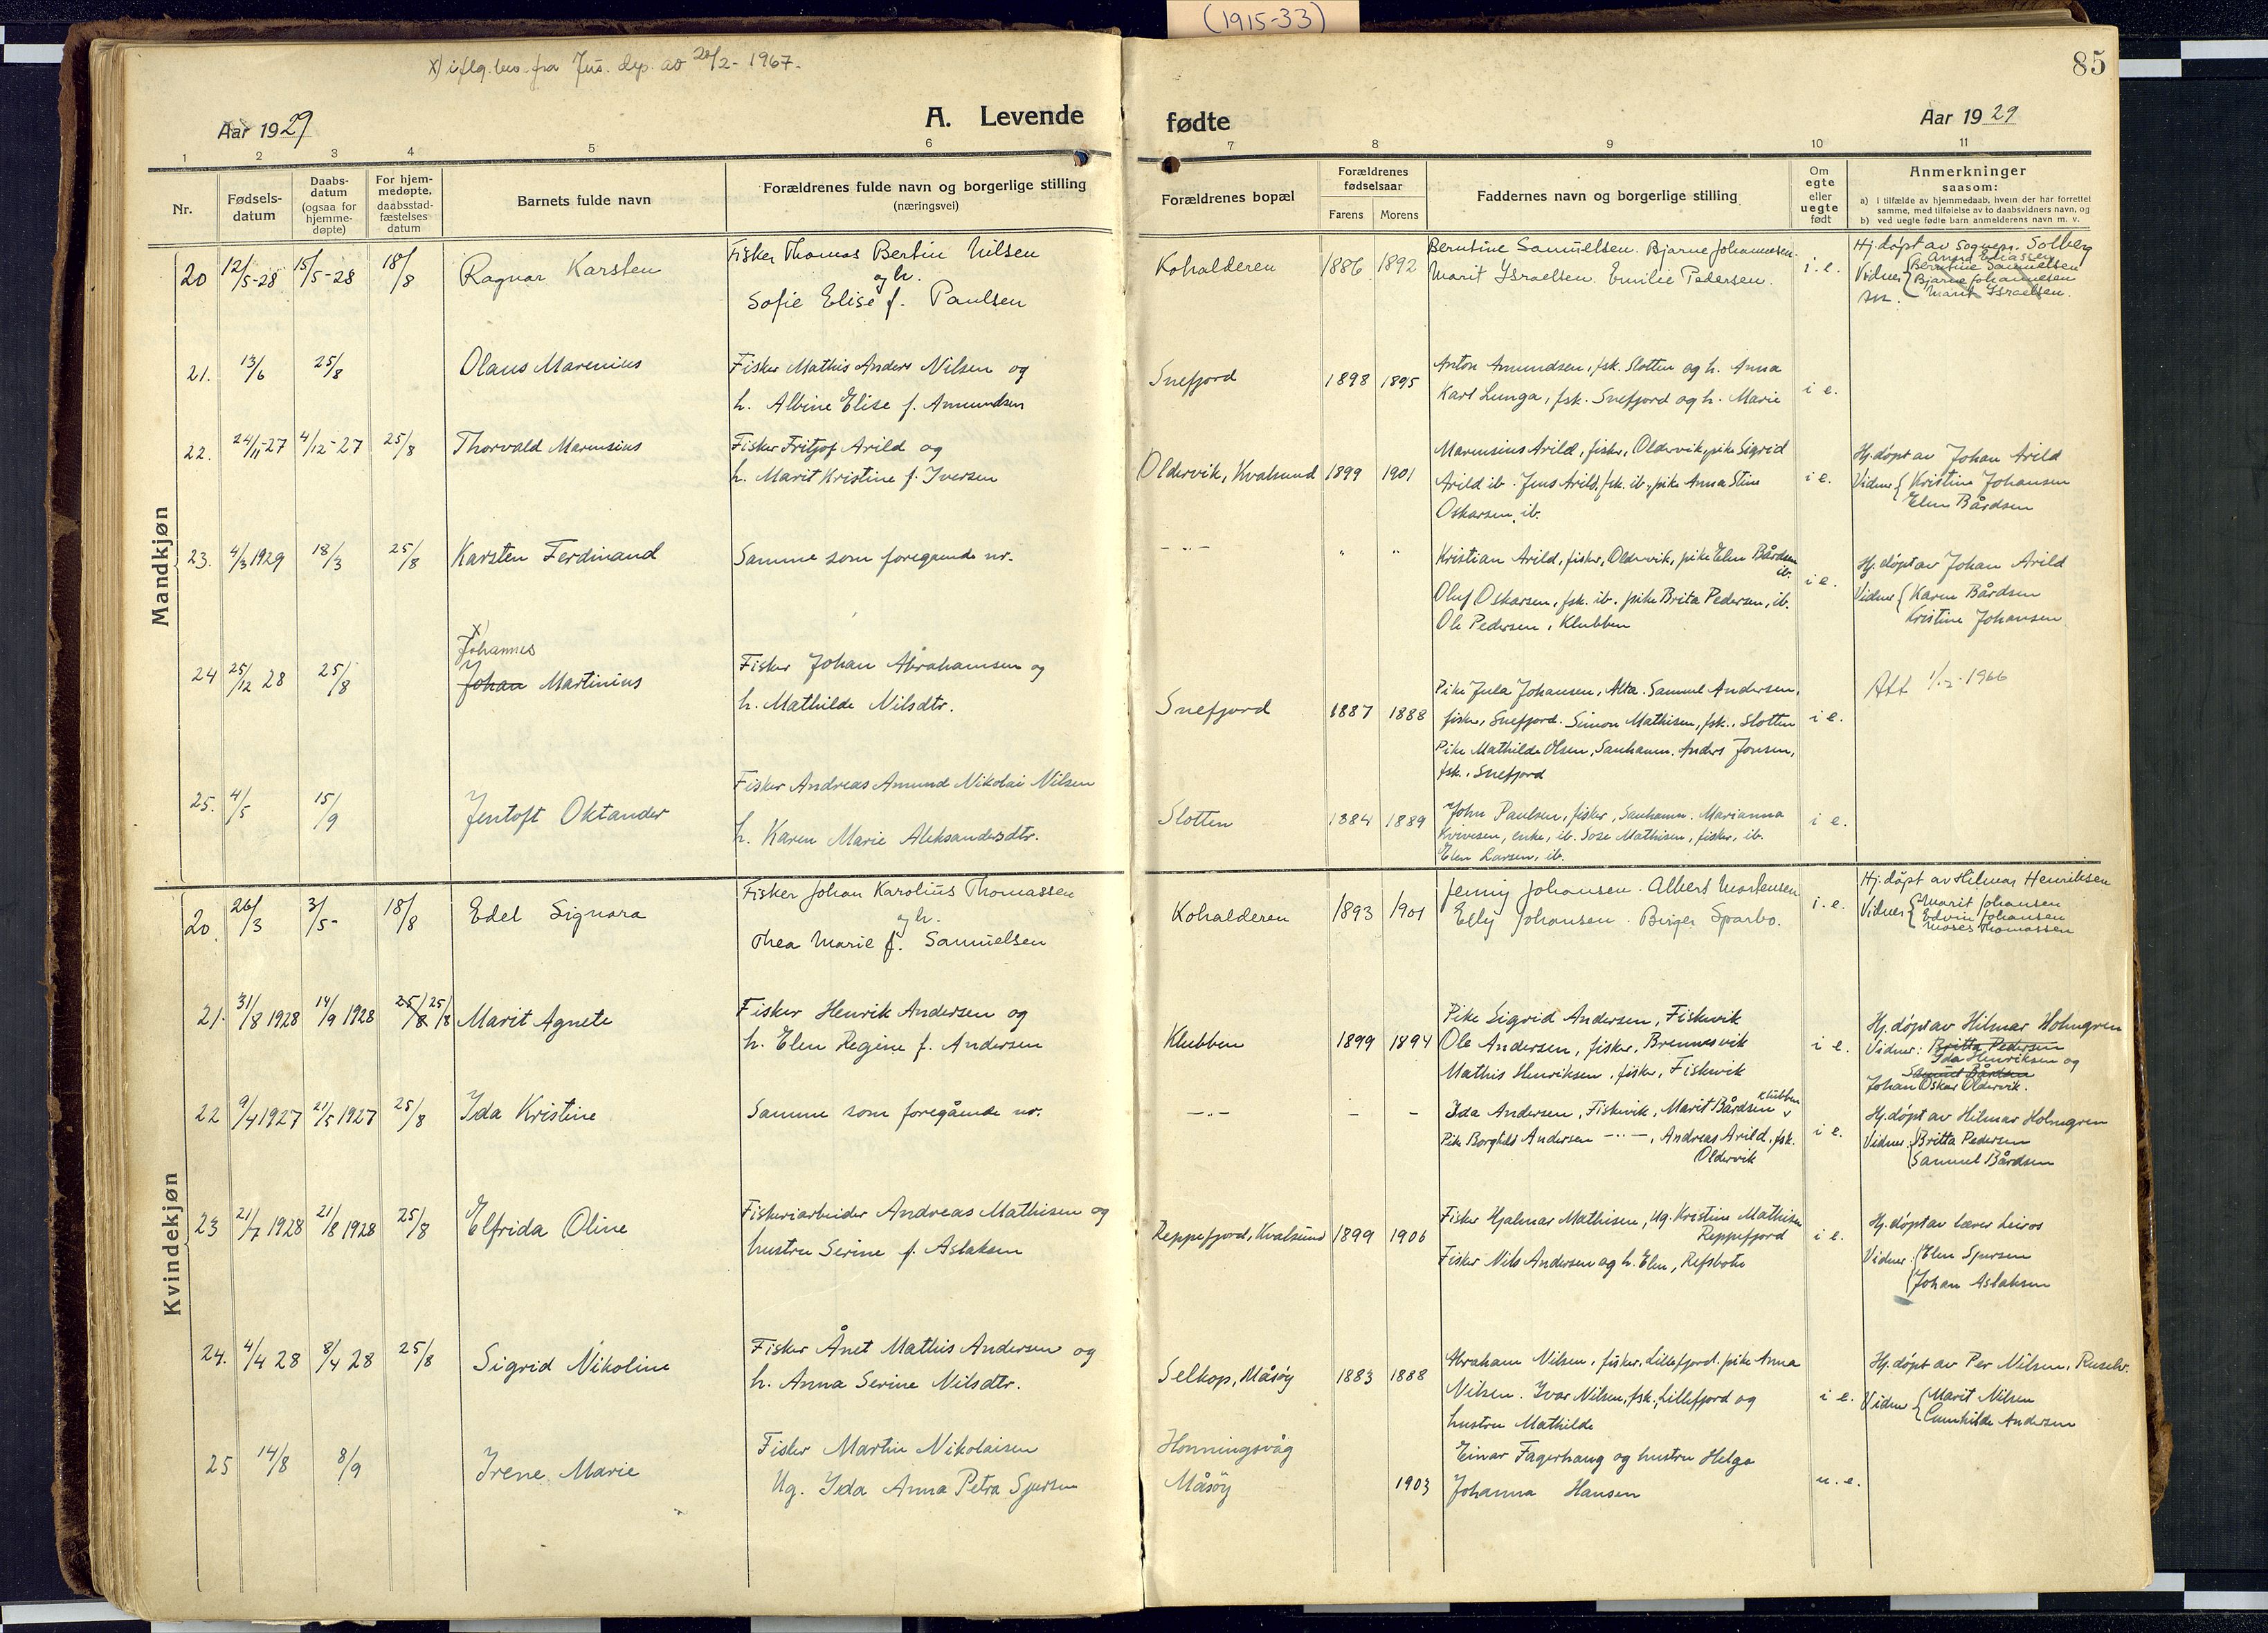 (1915-33)
X) iflg. bev. fra Jus. dep. av 20/2 - 1967.
85
Aar 1929
A. Levende
fødte
Aar 1929
1 2 3 4 5 6 7 8 9 10 11
Nr.
Fødsels-
datum
Daabs-
datum
(ogsaa for
hjemme-
døpte)
For hjem-
medøpte,
daabsstad-
fæstelses
datum
Barnets fulde navn
Forældrenes fulde navn og borgerlige stilling
(næringsvei)
Forældrenes bopæl
Forældrenes
fødselsaar
Farens Morens
Faddernes navn og borgerlige stilling
Om
egte
eller
uegte
født
Anmerkninger
saasom:
a) i tilfælde av hjemmedaab, hvem der har forrettet
samme, med tilføielse av to daabsvidners navn, og
b) ved uegte fødte barn anmelderens navn m. v.
Mandkjøn
20 12/5-28 15/5-28 18/8 Ragnar Karsten
Fisker Thomas Bertin Nilsen
og h.
Sofie Elise f. Paulsen
Kohalderen 1886 1892
Berntine Samuelsen. Bjarne Johannesen.
Marit Israelsen. Emilie Pedersen.
i. e.
Hj. døpt av sognepr. Solberg
Anna Eliassen
Vidner Berntine Samuelsen
Bjarne Johannesen
Marit Israelsen.
21. 13/6 25/8 Olaus Marenius
Fisker Mathis Anders Nilsen og
h. Albine Elise f. Amundsen
Snefjord 1898 1895
Anton Amundsen, fsk. Slotten og h. Anna
Karl Lunga, fsk. Snefjord og h. Marie
i e.
22. 24/11-27 4/12-27 25/8 Thorvald Marensius
Fisker Fritjof Arild og
h. Marit Kristine f. Iversen
Oldervik, Kvalsund 1899 1901
Marensius Arild, fisker, Oldervik, pike Sigrid
Arild ib. Jens Arild, fsk. ib., pike Anna Stine
Oskarsen, ib.
i e.
Hj. døpt av Johan Arild
Vidner Kristine Johansen
Elen Bårdsen
23. 4/3 1929 18/3 25/8 Karsten Ferdinand
Samme som foregaaende nr.
— „ — " "
Kristian Arild, fisker, Oldervik, pike Elen Bårdsen
ib.
Oluf Oskarsen, fsk. ib. pike Brita Pedersen, ib.
Ole Pedersen, Klubben
i e.
Hj. døpt av Johan Arild
Vidner Karen Bårdsen
Kristine Johansen
X)
Johannes
24 25/12 28 25/8 Johan Martinius
Fisker Johan Abrahamsen og
h. Mathilde Nilsdtr.
Snefjord 1887 1888
Pike Jula Johansen, Alta. Samuel Andersen,
fisker, Snefjord. Simon Mathisen, fsk., Slotten
Pike Mathilde Olsen, Sanhamn. Anders Jonsen,
fsk. Snefjord
i e.
Att 1/2-1966
25. 4/5 15/9 Jentoft Oktander
Fisker Andreas Amund Nikolai Nilsen
h. Karen Marie Aleksandersdtr.
Slotten 1884 1889
John Paulsen, fisker, Sanhamn. Marianna
enke, ib. Mathisen, fisker, ib.
Elen Larsen, ib.
i e.
Kvindekjøn
20. 26/3 3/5- 18/8 Edel Signora
Fisker Johan Karolius Thomassen
og h.
Thea Marie f. Samuelsen
Kohalderen 1893 1901
Jenny Johansen. Albert Mortensen
Elly Johansen. Birger Sparbo.
i. e.
Hj. døpt av Hilmar Henriksen
Vidner Marit Johansen
Edvin Johansen
Moses Thomassen
21. 31/8 1928 14/9 1928 25/8 25/8 Marit Agnete
Fisker Henrik Andersen og
h. Elen Regine f. Andersen
Klubben 1899 1894
Pike Sigrid Andersen, Fiskevik
Ole Andersen, fisker, Brennesvik
Mathis Henriksen, fisker, Fiskevik
i e.
Hj. døpt av Hilmar Holmgren
Vidner: Britta Pedersen
Ida Henriksen og
Samuel Bårdsen
Johan Oskar Oldervik.
22 9/4 1927 21/5 1927 25/8 Ida Kristine
Samme som foregående nr.
— „ — – –
Ida Andersen, Fiskevik, Marit Bårdsen Klubben
Pike Borghild Andersen — „ —, Andreas Arild, fsk.
Oldervik
i e.
Hj. døpt av Hilmar Holmgren
Vidner Britta Pedersen
Samuel Bårdsen
23 21/7 1928 21/8 1928 25/8 Elfrida Oline
Fiskeriarbeider Andreas Mathisen og
hustru Serine f. Aslaksen
Reppefjord, Kvalsund 1899 1906
Fisker Hjalmar Mathisen, Ug. Kristine Mathisen
Reppefjord
Fisker Nils Andersen og h. Elen, Refsbotn
i e.
Hj. døpt av lærer Leiros
Vidner Elen Sjursen
Johan Aslaksen
24. 4/4 28 8/4 28 25/8 Sigrid Nikoline
Fisker Ånet Mathis Andersen og
h. Anna Serine Nilsdtr.
Selkop, Måsøy 1883 1888
Abraham Nilsen, fisker, Lillefjord. pike Anna
Nilsen. Ivar Nilsen, fsk., Lillefjord og
hustru Mathilde
i e.
Hj. døpt av Per Nilsen, Ruselv.
Vidner Marit Nilsen
Gunhilde Andersen
25 14/8 8/9 Irene Marie
Fisker Martin Nikolaisen
Ug. Ida Anna Petra Sjursen
Honningsvåg
Måsøy 1903
Einar Fagerhaug og hustru Helga
Johanna Hansen
u. e.